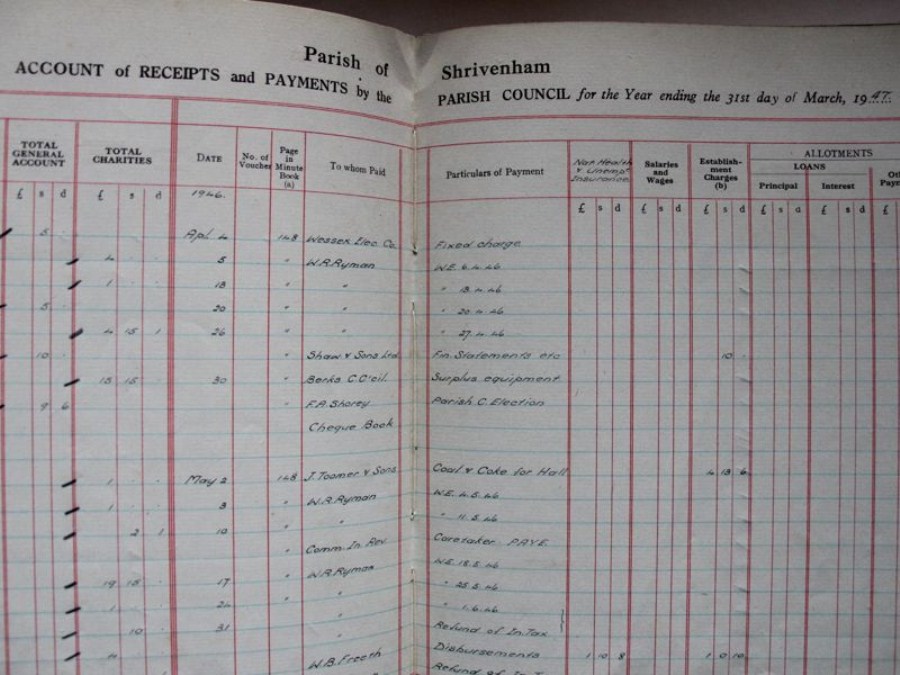 Parish of Shrivenham
ACCOUNT of RECEIPTS and PAYMENTS by the PARISH COUNCIL for the Year ending the 31st day of March, 1947.
TOTAL GENERAL ACCOUNT TOTAL CHARITIES DATE No. of Voucher Page in Minute Book (a) To whom Paid Particulars of Payment Nat. Health & Unempt Insurance. Salaries and Wages Establishment Charges (b) ALLOTMENTS
LOANS
Principal Interest
£ s d £ s d 1946. £ s d £ s d £ s d £ s d £ s d £
5 Apl. 4 148 Wessex Elec. Co. Fixed charge
4 5 " W.R.Ryman W.E. 6.4.46
1 18 " " " 13.4.46
5 20 " " " 20.4.46
4 15 1 26 " " " 27.4.46
10 " Shaw & Sons Ltd Fin. Statements etc 10
15 15 30 " Berks C.C'cil. Surplus equipment
9 6 " F.A. Shorey Parish C. Election
Cheque Book
1 May 2 148 J. Toomer & Sons Coal & Coke for Hall 4 13 6
1 3 W.R.Ryman W.E. 4.5.46
2 1 10 " " 11.5.46
" Comm. In. Rev. Caretaker PAYE
19 15 17 " W.R.Ryman W.E. 18.5.46
1 24 " " " 25.5.46
10 31 " " 1.6.46
" Refund of In. Tax
4 W.B. Freeth Disbursements 1 10 8 1 0 10
Refund of